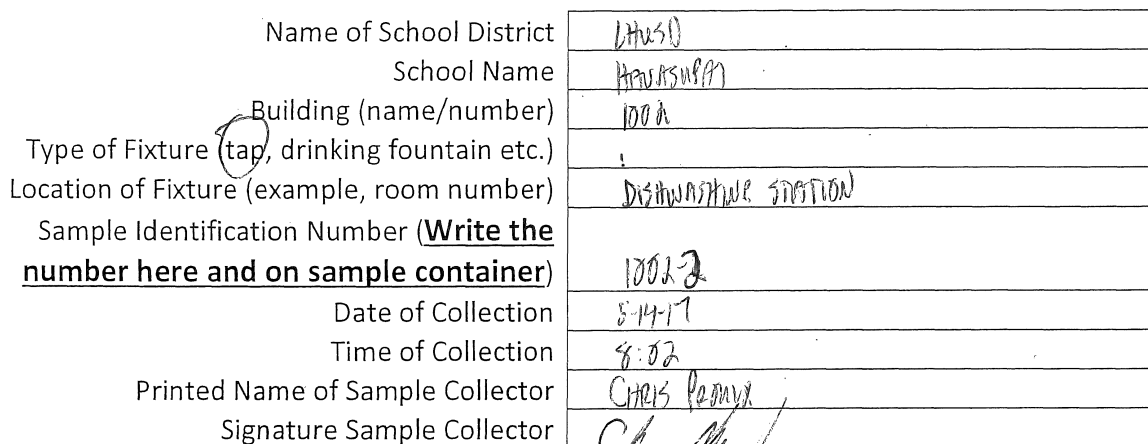 Name of School District LHUSD
School Name HAVASUPAI
Building (name/number) 1002
Type of Fixture (tap, drinking fountain etc.)
Location of Fixture (example, room number) DISHWASHING STATION
Sample Identification Number (Write the
number here and on sample container) 1002-2
Date of Collection 5-14-17
Time of Collection 8:02
Printed Name of Sample Collector CHRIS
Signature Sample Collector